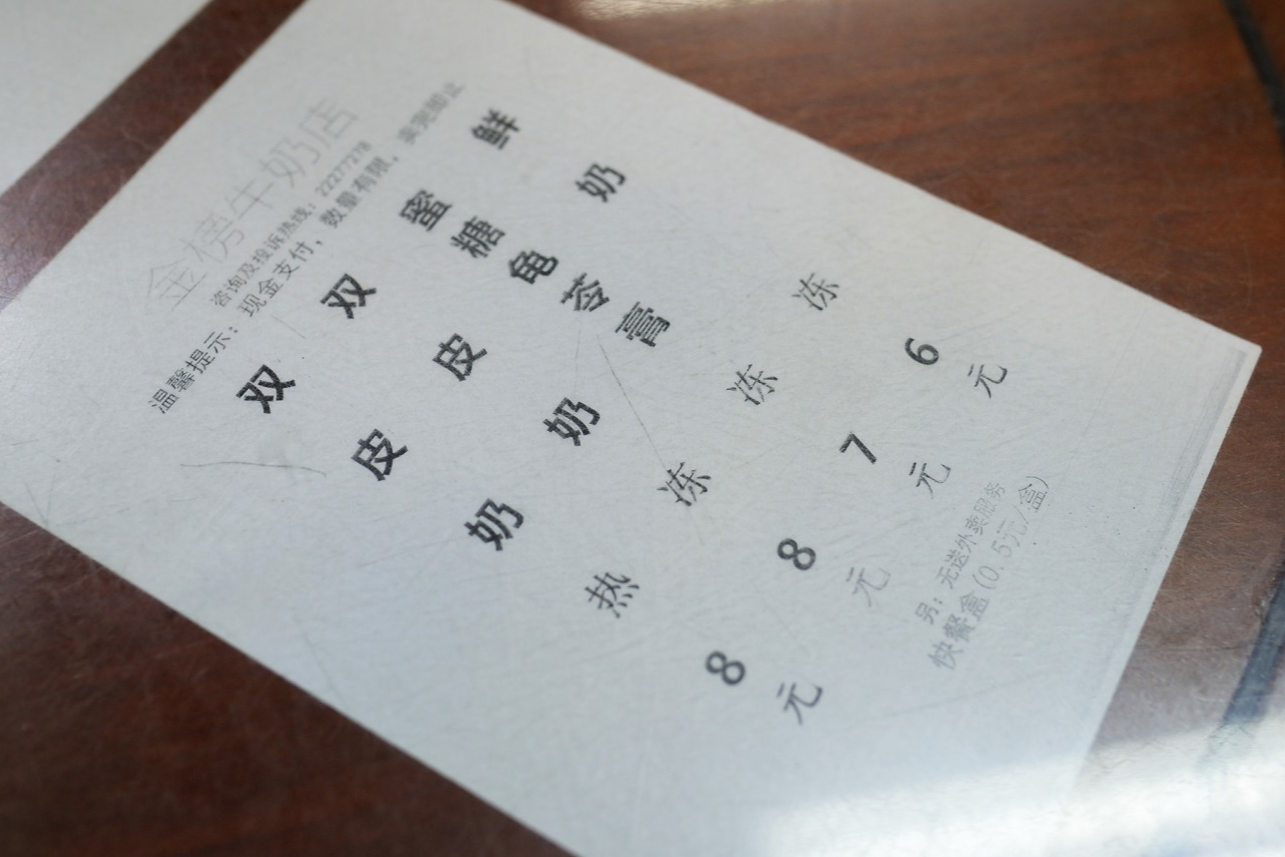 金榜牛奶店
咨询及投诉热线：22277278
温馨提示：现金支付，数量有限。卖完即止
双皮奶 热 8元
双皮奶 冻 8元
蜜糖龟苓膏 冻 7元
鲜奶 冻 6元
另：无送外卖服务
快餐盒(0.5元/盒)